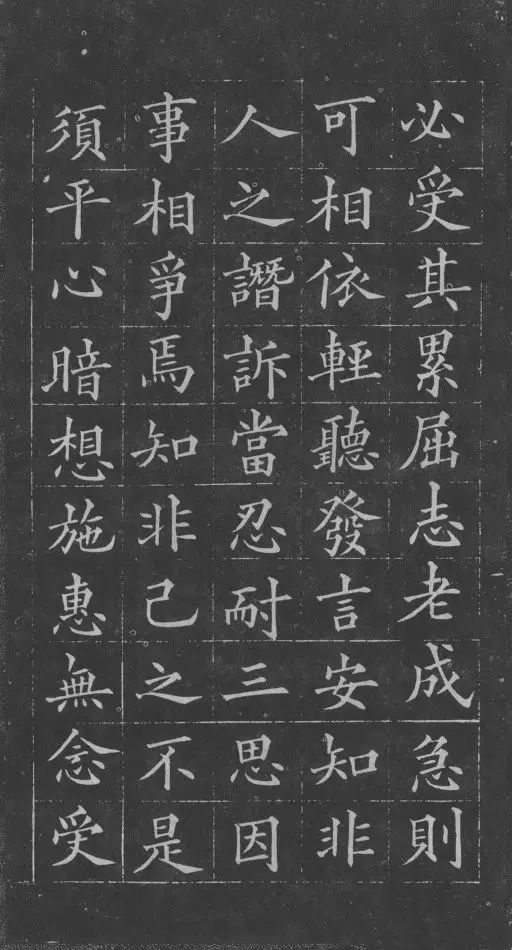 必受其累屈志老成急則
可相依輕聽發言安知非
人之譖訴當忍耐三思因
事相爭焉知非己之不是
須平心暗想施惠無念受